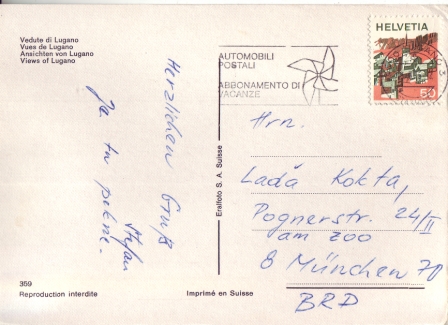 Vedute di Lugano
Vues de Lugano
Ansichten von Lugano
Views of Lugano
AUTOMOBILI
POSTALI
ABBONAMENTO DI
VACANZE
HELVETIA
50
Herzlichen Gruß
Stefan
Je tu pekne.
Hrn.
Lada Kokta,
Pognerstr. 24/II
am Zoo
8 München 70
BRD
Eralfoto S. A. Suisse
359
Reproduction interdite
Imprimé en Suisse